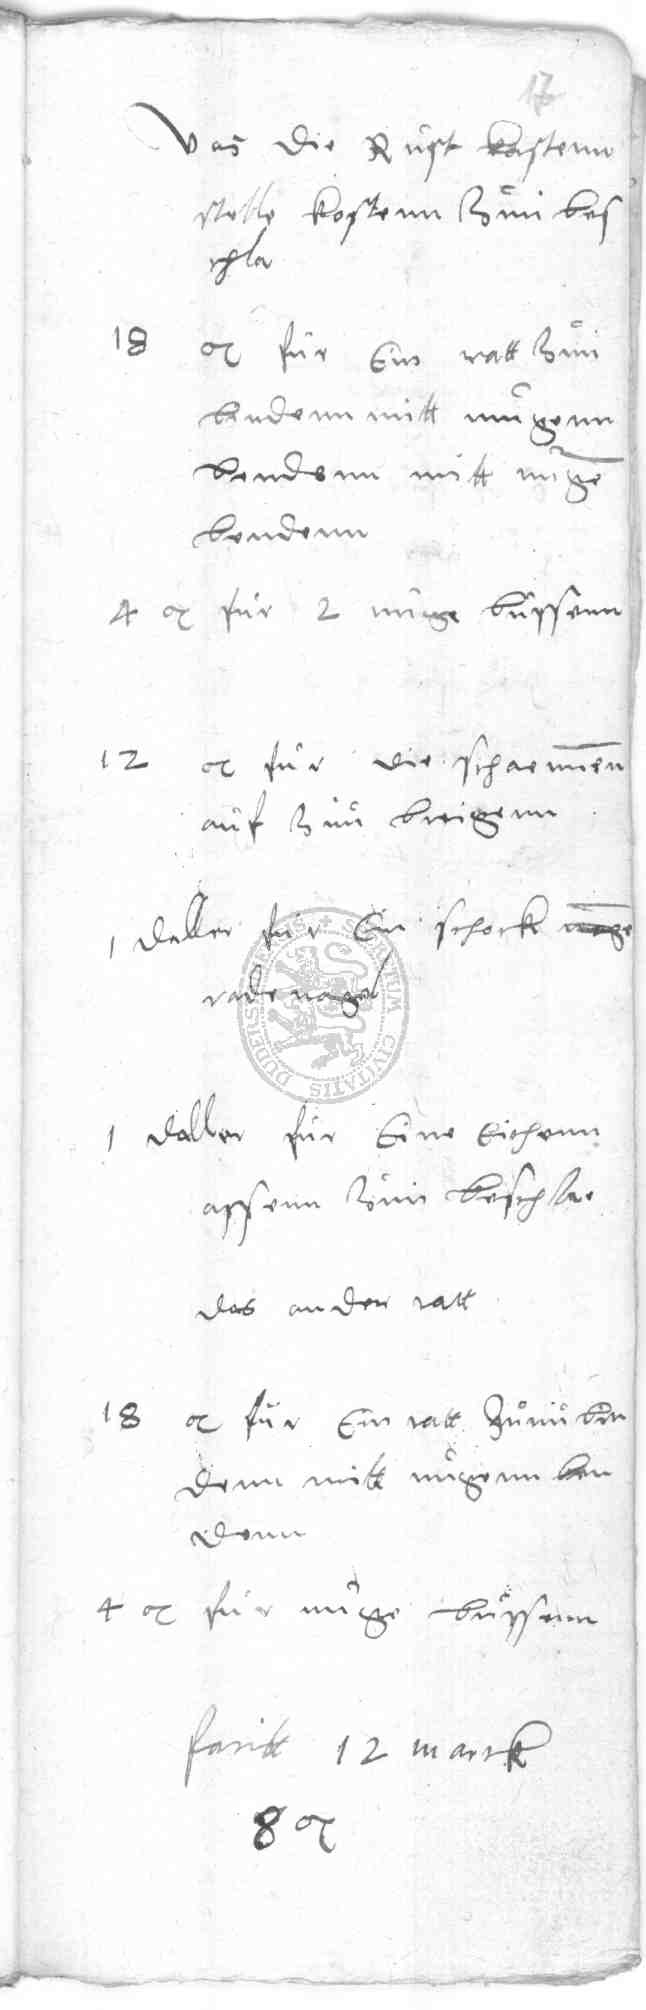 17
Vas die Rust kastenn
stelle kostenn Zuni bes
chla
18 ß für Ein ratt Zuni
bendenn mitt nuigenn
bendenn mitt nuige
bendenn
4 ß für 2 nuige bussenn
12 ß für die schaennen
auf Zuu breigenn
1 daller für Ein schock nage
rade nagel
1 daller für Eine Eichenn
assenn Zuni beschlae
das ander ratt
18 ß für Ein ratt Zunu ben
denn mitt nuigenn ben
denn
4 ß für nuige bussenn
facitt 12 marck
8 ß
SIGILLUM CIVITATIS